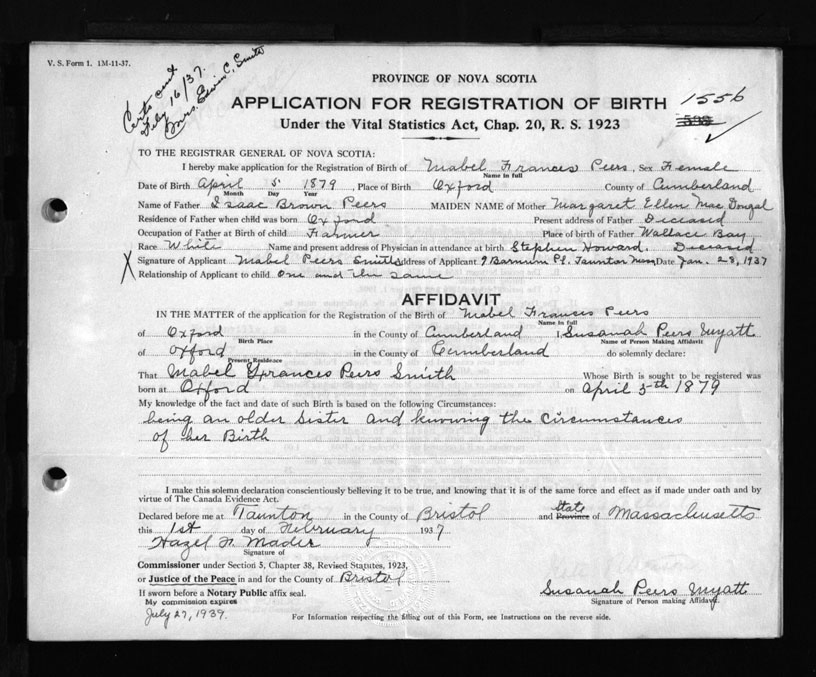 V. S. Form 1. 1M-11-37.
Certs sent
July 16/37.
Mrs. Edwin C. Smith
PROVINCE OF NOVA SCOTIA
APPLICATION FOR REGISTRATION OF BIRTH 1556
Under the Vital Statistics Act, Chap. 20, R. S. 1923
TO THE REGISTRAR GENERAL OF NOVA SCOTIA:
I hereby make application for the Registration of Birth of Mabel Frances Peers, Sex Female
Name in full
Date of Birth April 5 1879, Place of Birth Oxford County of Cumberland
Month Day Year
Name of Father Isaac Brown Peers MAIDEN NAME of Mother Margaret Ellen Mac Dougal
Residence of Father when child was born Oxford Present address of Father Deceased
Occupation of Father at Birth of child Farmer Place of birth of Father Wallace Bay
Race White Name and present address of Physician in attendance at birth Stephen Howard. Deceased
X Signature of Applicant Mabel Peers Smith Address of Applicant 9 Barnum Pl. Taunton Mass Date Jan. 28, 1937
Relationship of Applicant to child One and the same
AFFIDAVIT
IN THE MATTER of the application for the Registration of the Birth of Mabel Frances Peers
Name in full
of Oxford in the County of Cumberland I, Susanah Peers Myatt
Birth Place Name of Person Making Affidavit
of Oxford in the County of Cumberland do solemnly declare:
Present Residence
That Mabel Frances Peers Smith Whose Birth is sought to be registered was
born at Oxford on April 5th 1879
My knowledge of the fact and date of such Birth is based on the following Circumstances:
being an older sister and knowing the circumstances
of her Birth
I make this solemn declaration conscientiously believing it to be true, and knowing that it is of the same force and effect as if made under oath and by
virtue of The Canada Evidence Act.
Declared before me at Taunton in the County of Bristol and Province State of Massachusetts
this 1st day of February 1937
Hazel N. Mader
Signature of
Commissioner under Section 5, Chapter 38, Revised Statutes, 1923,
or Justice of the Peace in and for the County of Bristol
If sworn before a Notary Public affix seal. Susanah Peers Myatt
My commission expires Signature of Person making Affidavit.
July 27, 1939.
For Information respecting the filling out of this Form, see Instructions on the reverse.